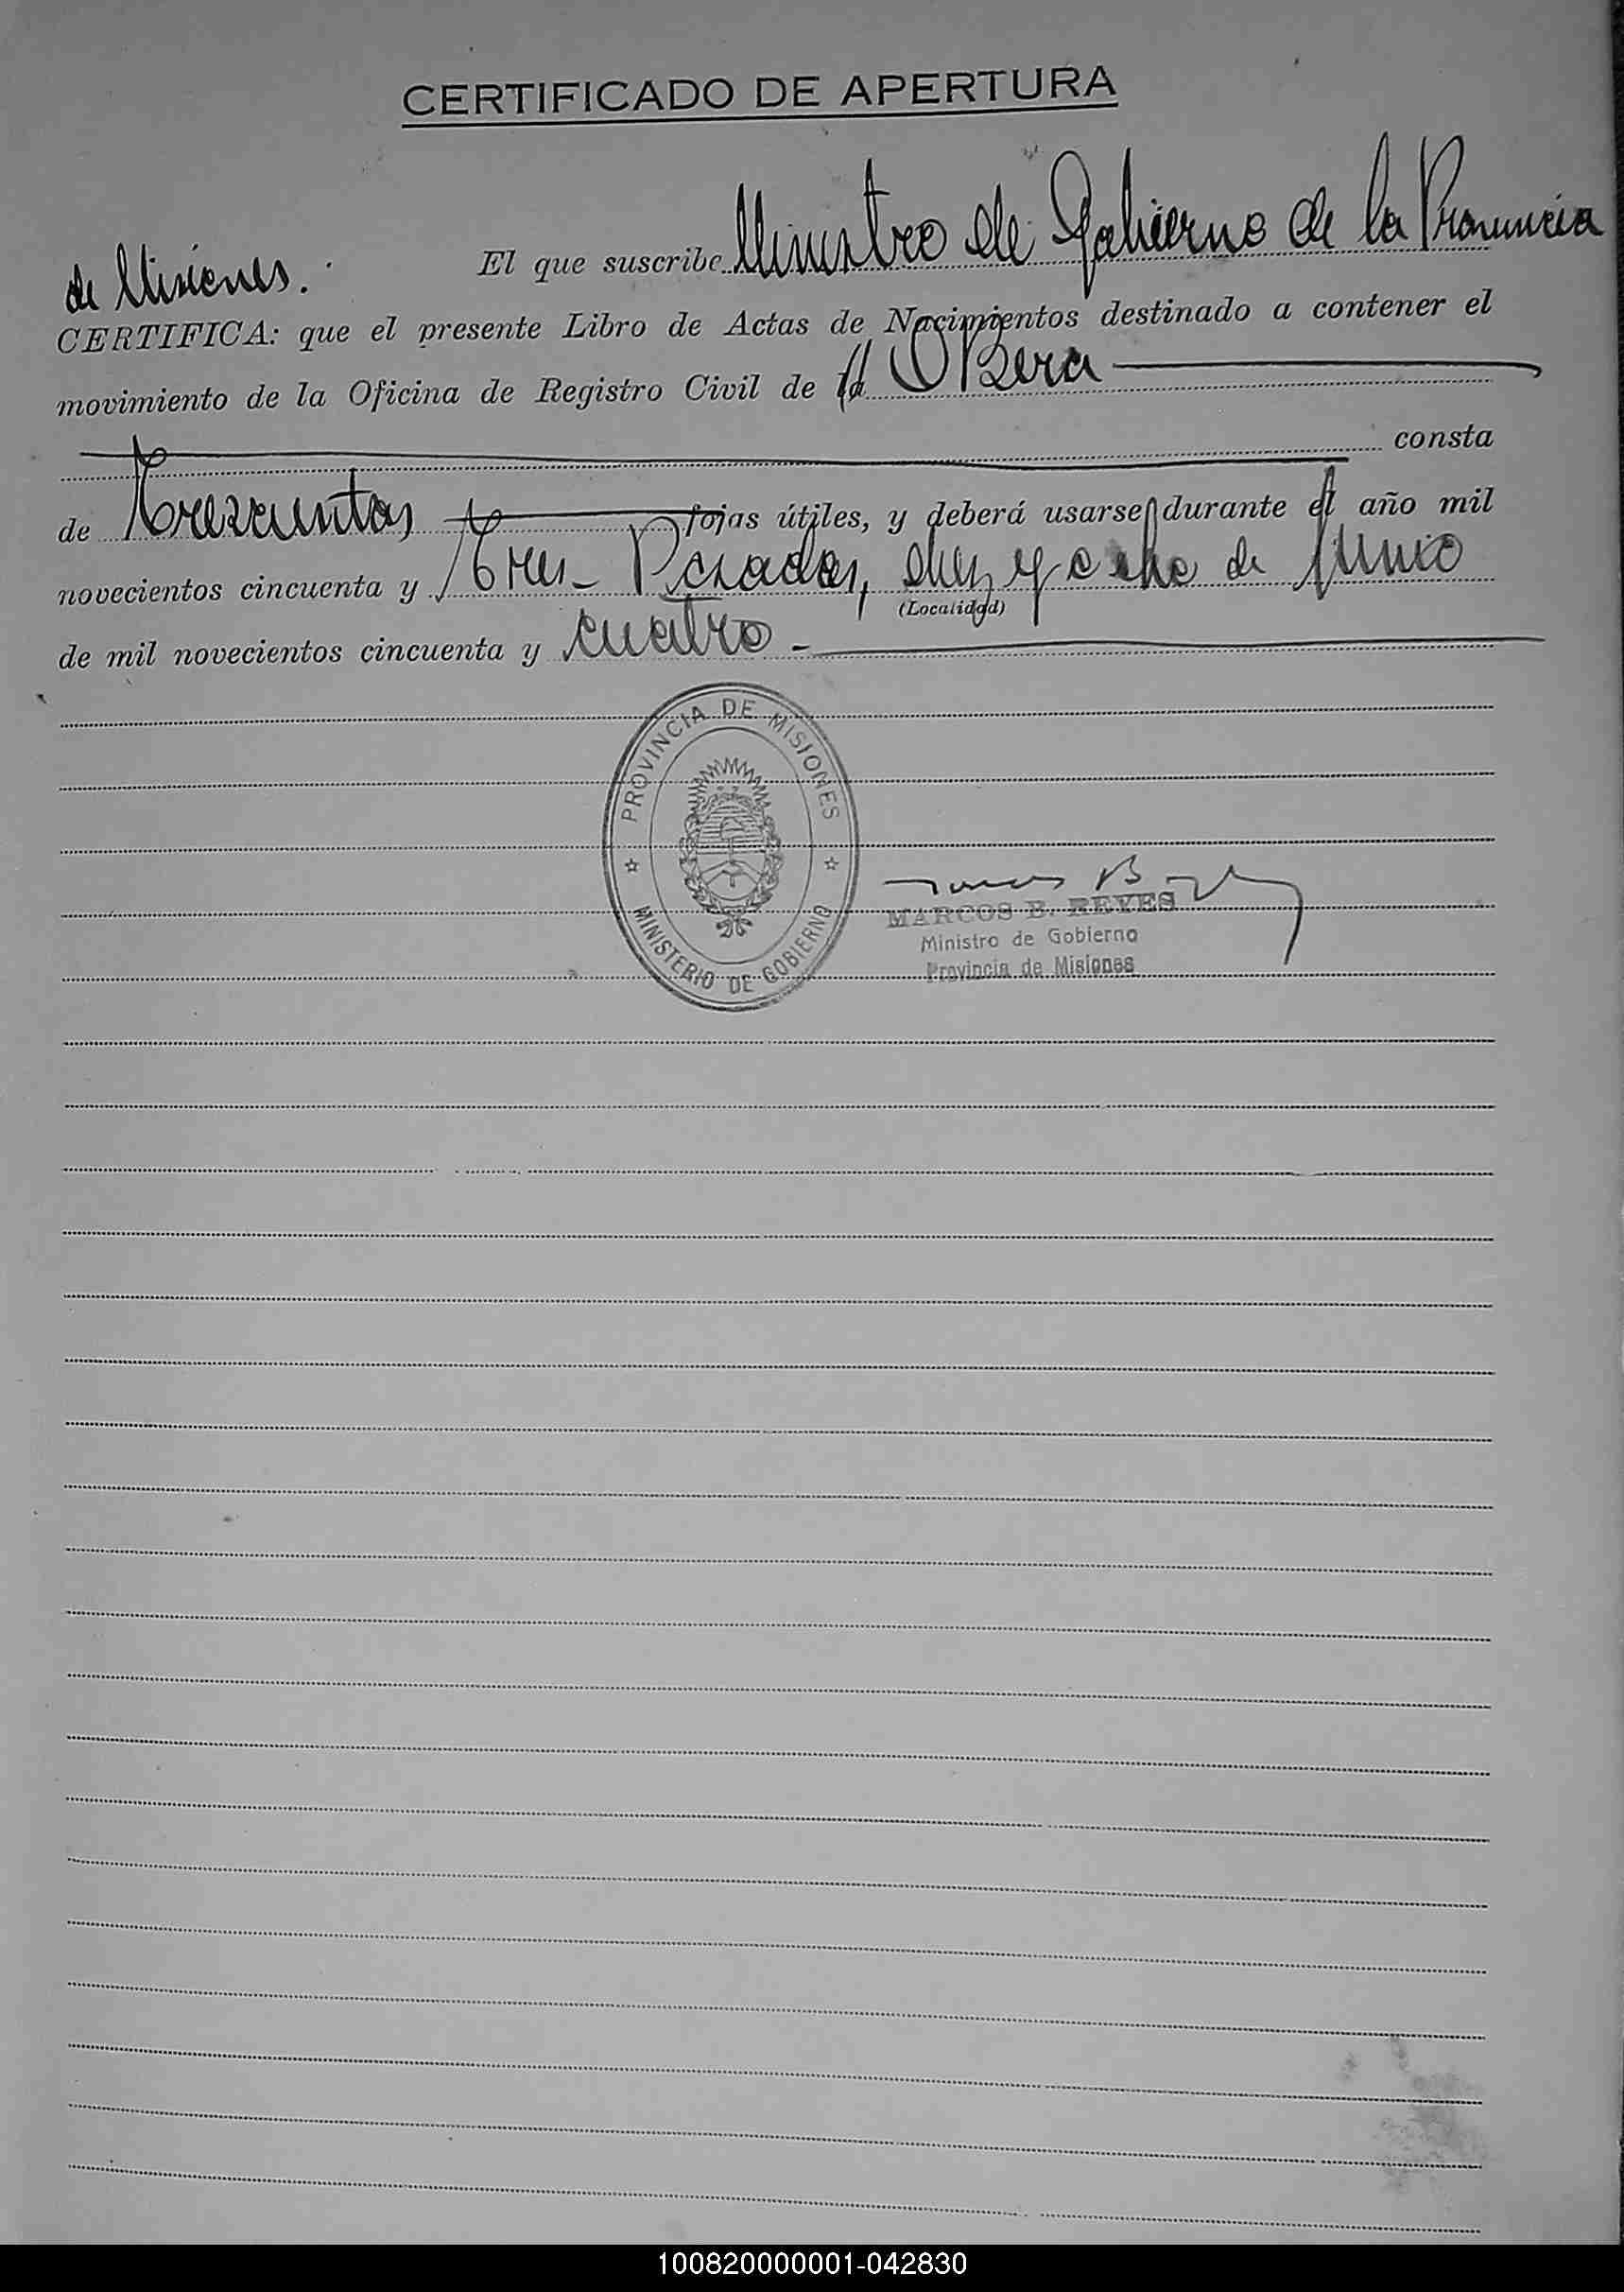 CERTIFICADO DE APERTURA
El que suscribe Ministro de Gobierno de la Provincia
de Misiones.
CERTIFICA: que el presente Libro de Actas de Nacimientos destinado a contener el
movimiento de la Oficina de Registro Civil de la OBera
consta
de Trescientas fojas útiles, y deberá usarse durante el año mil
novecientos cincuenta y Tres - Posadas, diez y ocho de Junio
(Localidad)
de mil novecientos cincuenta y cuatro -
PROVINCIA DE MISIONES
MINISTERIO DE GOBIERNO
MARCOS B. REYES
Ministro de Gobierno
Provincia de Misiones
100820000001-042830